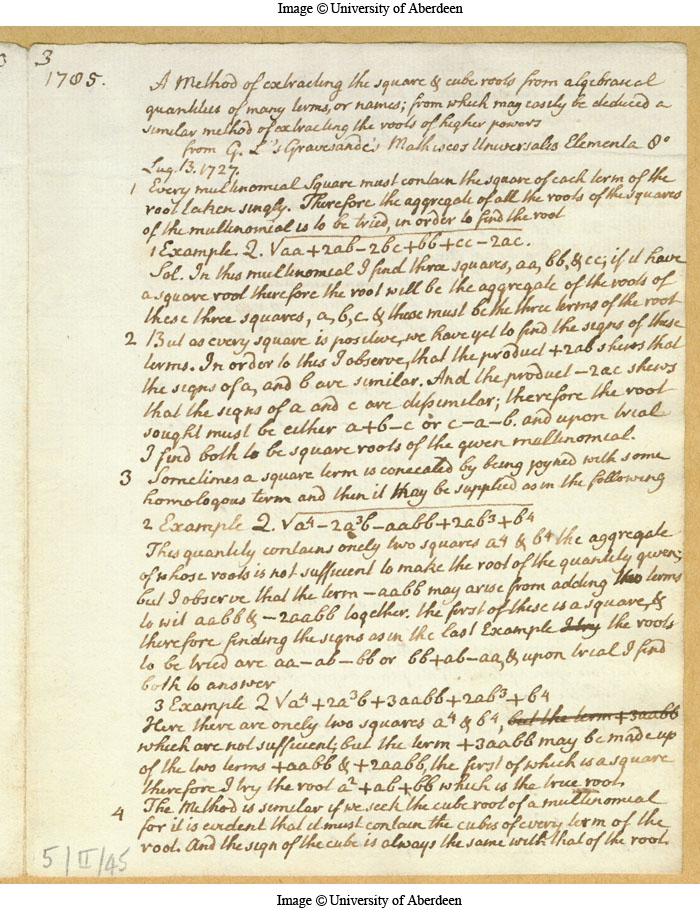 Image © University of Aberdeen
3
1785.
A Method of extracting the square & cube roots from algebraical
quantities of many terms, or names; from which may easily be deduced a
similar method of extracting the roots of higher powers
from G. L's Gravesande's Matheseos Universalis Elementa &c
Lug. B. 1727.
1 Every multinomial Square must contain the square of each term of the
root taken singly. Therefore the aggregate of all the roots of the squares
of the multinomial is to be tried, in order to find the root
1 Example. Q. √aa+2ab-2bc+bb+cc-2ac.
Sol. In this multinomial I find three squares, aa, bb, & cc; if it have
a square root therefore the root will be the aggregate of the roots of
these three squares, a, b, c & these must be the three terms of the root
2 But as every square is positive, we have yet to find the signs of these
terms. In order to this I observe, that the product +2ab shews that
the signs of a, and b are similar. And the product -2ac shews
that the signs of a and c are dissimilar; therefore the root
sought must be either a+b-c or c-a-b. and upon trial
I find both to be square roots of the given multinomial.
3 Sometimes a square term is concealed by being joyned with some
homologous term and then it may be supplied as in the following
2 Example Q. √a⁴-2a³b-aabb+2ab³+b⁴
This quantity contains onely two squares a⁴ & b⁴ the aggregate
of whose roots is not sufficient to make the root of the quantity given;
but I observe that the term -aabb may arise from adding two terms
to wit aabb & -2aabb together. the first of these is a square, &
therefore finding the signs as in the last Example I try the roots
to be tried are aa-ab-bb or bb+ab-aa, & upon trial I find
both to answer
3 Example Q √a⁴+2a³b+3aabb+2ab³+b⁴
Here there are onely two squares a⁴ & b⁴, but the term +3aabb
which are not sufficient, but the term +3aabb may be made up
of the two terms +aabb & +2aabb, the first of which is a square
therefore I try the root a²+ab+bb which is the true root.
4 The Method is similar if we seek the cube root of a multinomial
for it is evident that it must contain the cubes of every term of the
root. And the sign of the cube is always the same with that of the root.
5/II/45
Image © University of Aberdeen